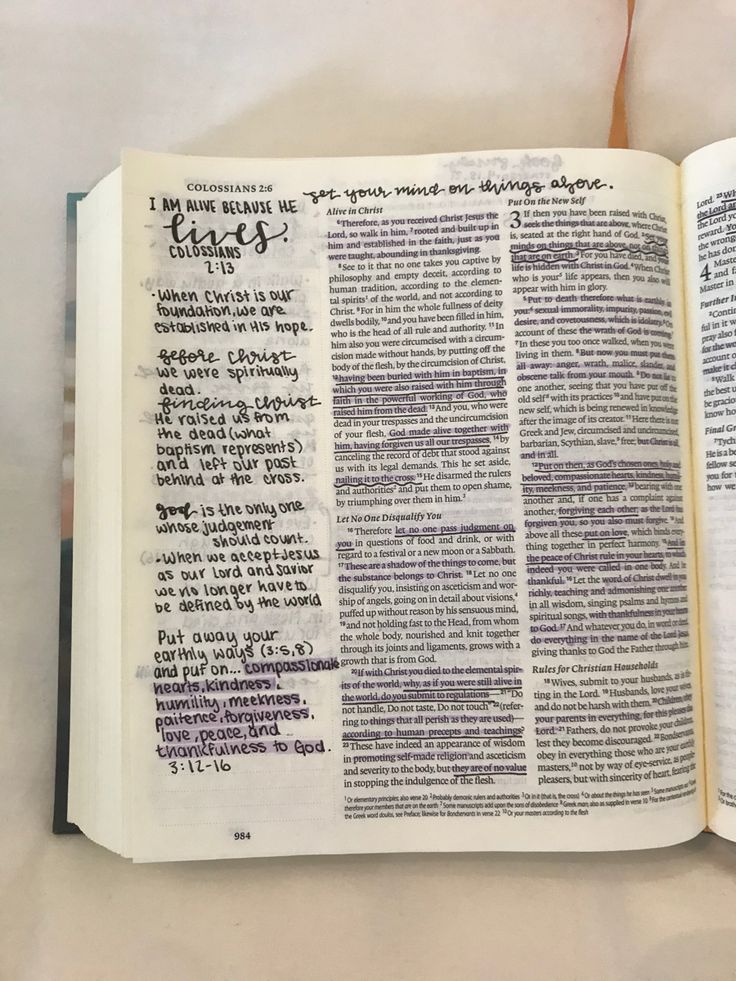 COLOSSIANS 2:6
set your mind on things above.
I AM ALIVE BECAUSE HE
lives.
COLOSSIANS
2:13
• When Christ is our
foundation, we are
established in His hope.
before Christ
we were spiritually
dead.
finding Christ
He raised us from
the dead (what
baptism represents)
and left our past
behind at the cross.
God is the only one
whose judgement
should count.
• When we accept Jesus
as our Lord and Savior
we no longer have to
be defined by the world
Put away your
earthly ways (3:5,8)
and put on... compassionate
hearts, kindness,
humility, meekness,
paitence, forgiveness,
love, peace, and
thankfulness to God.
3:12-16
984
Alive in Christ
6 Therefore, as you received Christ Jesus the
Lord, so walk in him, 7 rooted and built up in
him and established in the faith, just as you
were taught, abounding in thanksgiving.
8 See to it that no one takes you captive by
philosophy and empty deceit, according to
human tradition, according to the elemen-
tal spirits1 of the world, and not according to
Christ. 9 For in him the whole fullness of deity
dwells bodily, 10 and you have been filled in him,
who is the head of all rule and authority. 11 In
him also you were circumcised with a circum-
cision made without hands, by putting off the
body of the flesh, by the circumcision of Christ,
12 having been buried with him in baptism, in
which you were also raised with him through
faith in the powerful working of God, who
raised him from the dead. 13 And you, who were
dead in your trespasses and the uncircumcision
of your flesh, God made alive together with
him, having forgiven us all our trespasses, 14 by
canceling the record of debt that stood against
us with its legal demands. This he set aside,
nailing it to the cross. 15 He disarmed the rulers
and authorities2 and put them to open shame,
by triumphing over them in him.3
Let No One Disqualify You
16 Therefore let no one pass judgment on
you in questions of food and drink, or with
regard to a festival or a new moon or a Sabbath.
17 These are a shadow of the things to come, but
the substance belongs to Christ. 18 Let no one
disqualify you, insisting on asceticism and wor-
ship of angels, going on in detail about visions,4
puffed up without reason by his sensuous mind,
19 and not holding fast to the Head, from whom
the whole body, nourished and knit together
through its joints and ligaments, grows with a
growth that is from God.
20 If with Christ you died to the elemental spir-
its of the world, why, as if you were still alive in
the world, do you submit to regulations— 21 "Do
not handle, Do not taste, Do not touch" 22 (refer-
ring to things that all perish as they are used)—
according to human precepts and teachings?
23 These have indeed an appearance of wisdom
in promoting self-made religion and asceticism
and severity to the body, but they are of no value
in stopping the indulgence of the flesh.
Put On the New Self
3 If then you have been raised with Christ,
seek the things that are above, where Christ
is, seated at the right hand of God. 2 Set your
minds on things that are above, not on things
that are on earth. 3 For you have died, and your
life is hidden with Christ in God. 4 When Christ
who is your5 life appears, then you also will
appear with him in glory.
5 Put to death therefore what is earthly in
you:6 sexual immorality, impurity, passion, evil
desire, and covetousness, which is idolatry. 6 On
account of these the wrath of God is coming.7
7 In these you too once walked, when you were
living in them. 8 But now you must put them
all away: anger, wrath, malice, slander, and
obscene talk from your mouth. 9 Do not lie to
one another, seeing that you have put off the
old self8 with its practices 10 and have put on the
new self, which is being renewed in knowledge
after the image of its creator. 11 Here there is not
Greek and Jew, circumcised and uncircumcised,
barbarian, Scythian, slave,9 free; but Christ is all,
and in all.
12 Put on then, as God's chosen ones, holy and
beloved, compassionate hearts, kindness, humil-
ity, meekness, and patience, 13 bearing with one
another and, if one has a complaint against
another, forgiving each other; as the Lord has
forgiven you, so you also must forgive. 14 And
above all these put on love, which binds every-
thing together in perfect harmony. 15 And let
the peace of Christ rule in your hearts, to which
indeed you were called in one body. And be
thankful. 16 Let the word of Christ dwell in you
richly, teaching and admonishing one another
in all wisdom, singing psalms and hymns and
spiritual songs, with thankfulness in your hearts
to God. 17 And whatever you do, in word or deed,
do everything in the name of the Lord Jesus,
giving thanks to God the Father through him.
Rules for Christian Households
18 Wives, submit to your husbands, as is fit-
ting in the Lord. 19 Husbands, love your wives,
and do not be harsh with them. 20 Children, obey
your parents in everything, for this pleases the
Lord. 21 Fathers, do not provoke your children,
lest they become discouraged. 22 Bondservants,
obey in everything those who are your earthly
masters,10 not by way of eye-service, as people-
pleasers, but with sincerity of heart, fearing the